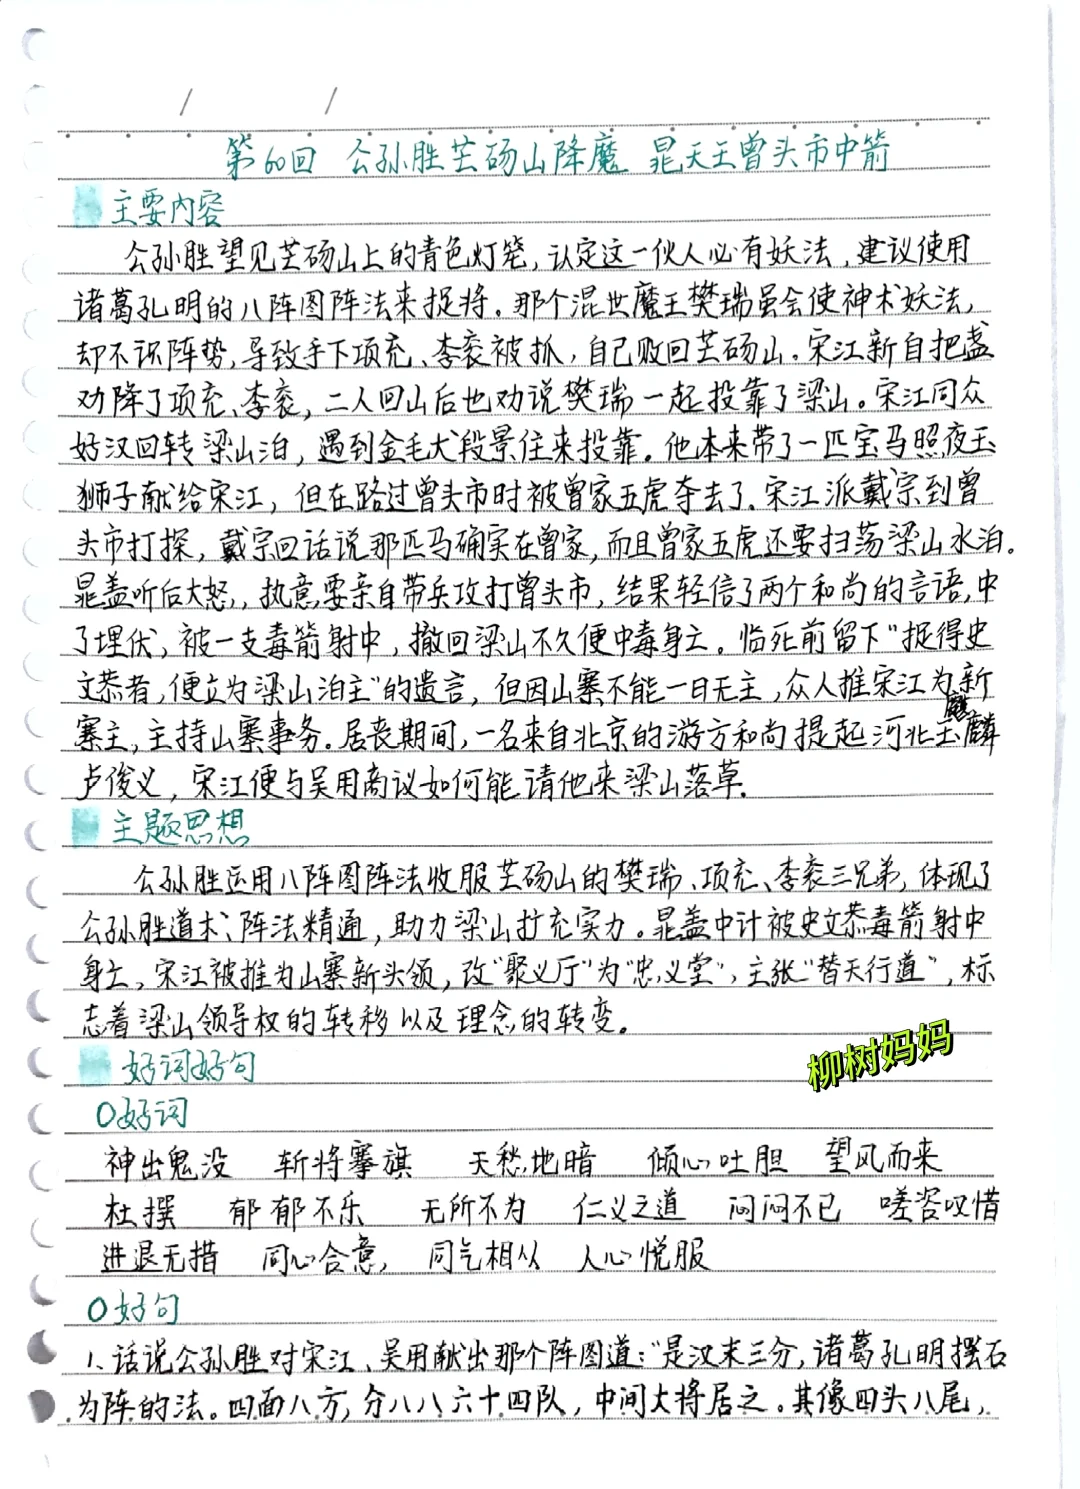 第60回 公孙胜芒砀山降魔 晁天王曾头市中箭
主要内容
公孙胜望见芒砀山上的青色灯笼,认定这一伙人必有妖法,建议使用
诸葛孔明的八阵图阵法来捉将。那个混世魔王樊瑞虽会使神术妖法,
却不识阵势,导致手下项充、李衮被抓,自己败回芒砀山。宋江新自把盏
劝降了项充、李衮,二人回山后也劝说樊瑞一起投靠了梁山。宋江同众
好汉回转梁山泊,遇到金毛犬段景住来投靠。他本来带了一匹宝马照夜玉
狮子献给宋江,但在路过曾头市时被曾家五虎夺去了。宋江派戴宗到曾
头市打探,戴宗回话说那匹马确实在曾家,而且曾家五虎还要扫荡梁山水泊。
晁盖听后大怒,执意要亲自带兵攻打曾头市,结果轻信了两个和尚的言语,中
了埋伏,被一支毒箭射中,撤回梁山不久便中毒身亡。临死前留下"捉得史
文恭者,便立为梁山泊主"的遗言,但因山寨不能一日无主,众人推宋江为新
寨主,主持山寨事务。居丧期间,一名来自北京的游方和尚提起河北玉麒麟
卢俊义,宋江便与吴用商议如何能请他来梁山落草。
主题思想
公孙胜运用八阵图阵法收服芒砀山的樊瑞、项充、李衮三兄弟,体现了
公孙胜道术、阵法精通,助力梁山扩充实力。晁盖中计被史文恭毒箭射中
身亡,宋江被推为山寨新头领,改"聚义厅"为"忠义堂",主张"替天行道",标
志着梁山领导权的转移以及理念的转变。
柳树妈妈
好词好句
○好词
神出鬼没 斩将搴旗 天愁地暗 倾心吐胆 望风而来
杜撰 郁郁不乐 无所不为 仁义之道 闷闷不已 嗟咨叹惜
进退无措 同心合意, 同气相从 人心悦服
○好句
1、话说公孙胜对宋江、吴用献出那个阵图道:"是汉末三分,诸葛孔明摆石
为阵的法。四面八方,分八八六十四队,中间大将居之。其像四头八尾,